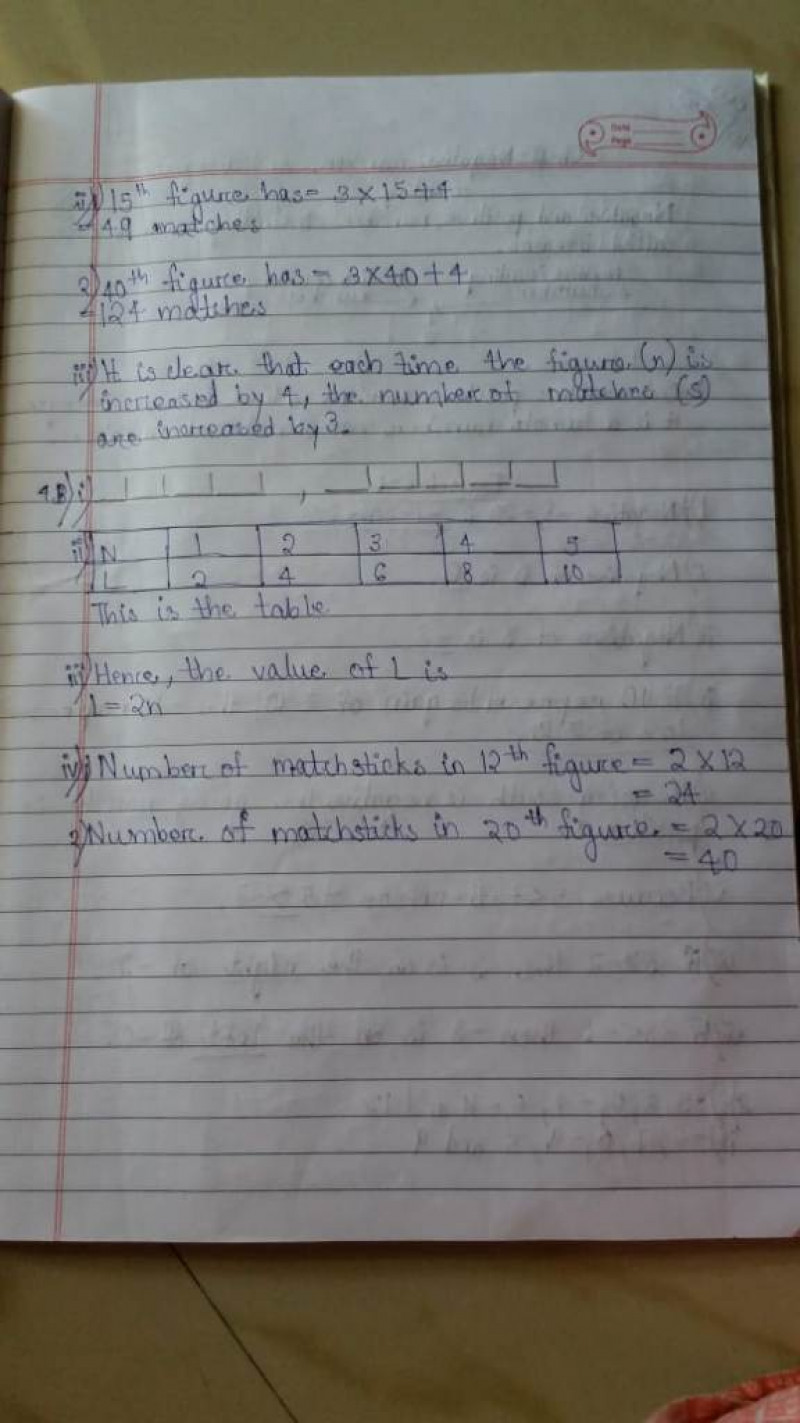 Date
Page
ii) 15th figure has = 3 × 15 + 4
= 49 matches
2) 40th figure has = 3 × 40 + 4
= 124 matches
iii) It is clear that each time the figure (n) is
increased by 1, the number of matche (s)
are increased by 3.
4.B) i)
ii) N 1 2 3 4 5
L 2 4 6 8 10
This is the table
iii) Hence, the value of L is
L = 2n
iv) 1) Number of matchsticks in 12th figure = 2 × 12
= 24
2) Number of matchsticks in 20th figure = 2 × 20
= 40